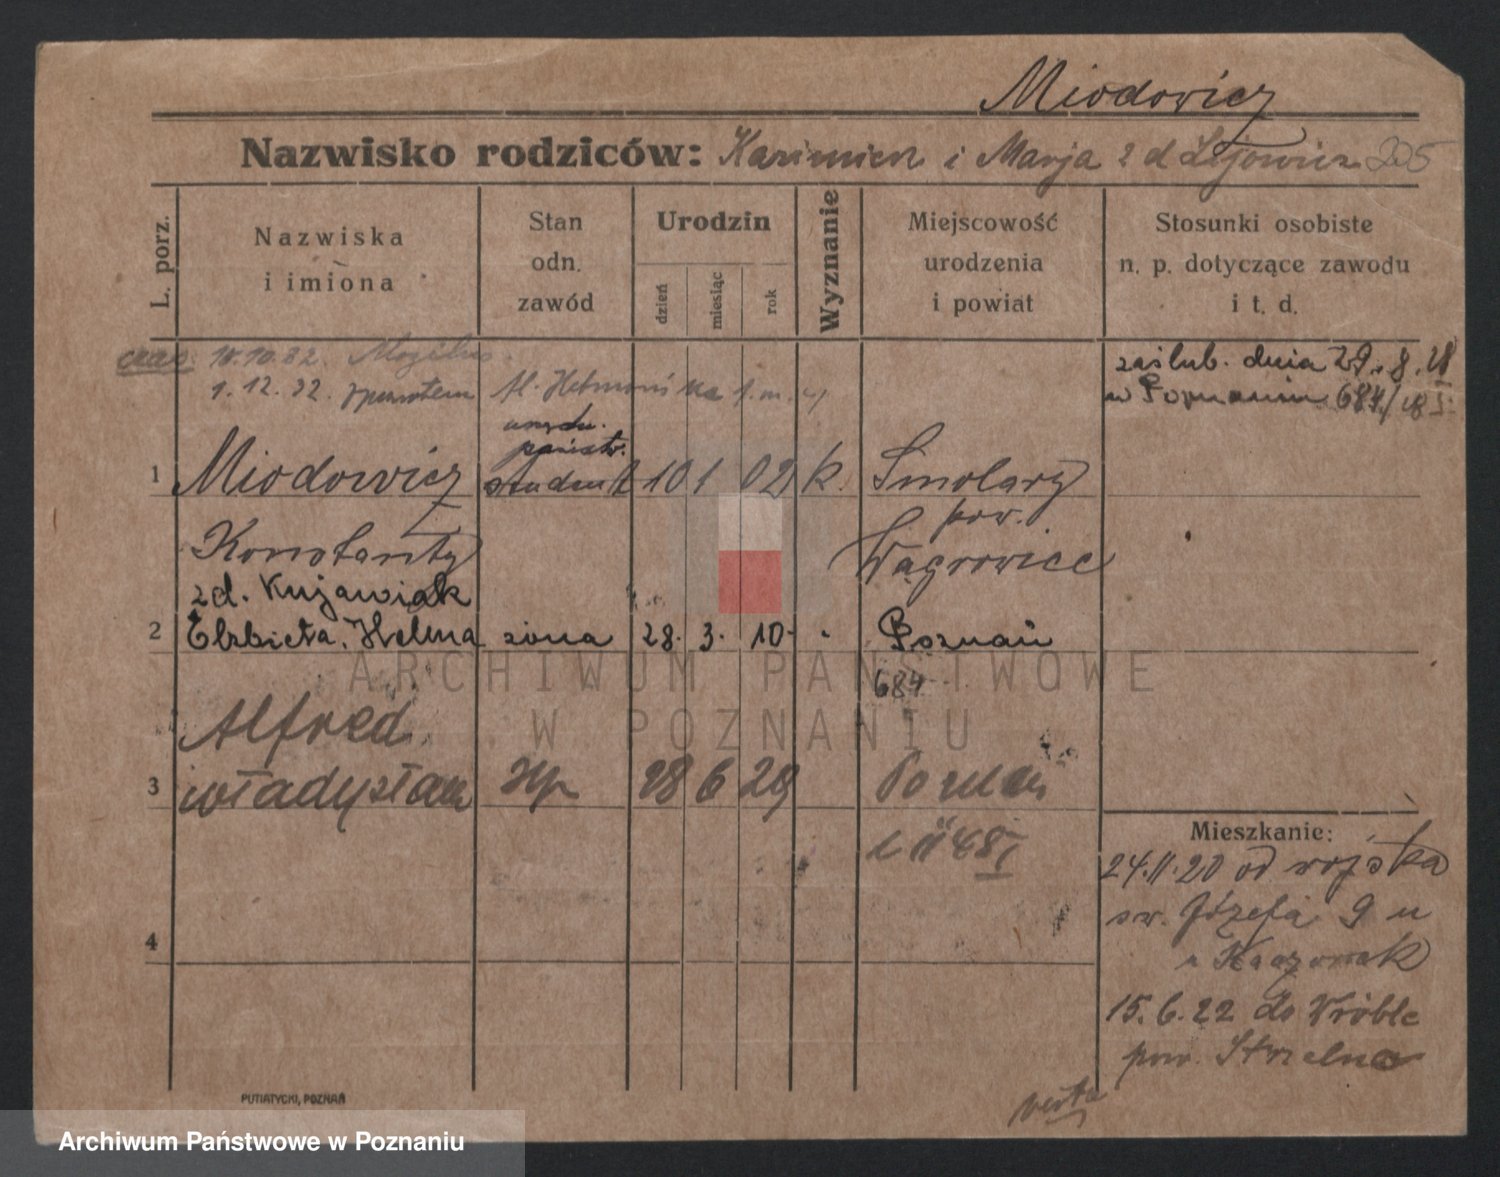 Miodowicz
Nazwisko rodziców: Kazimierz i Marja z d Łojowicz 205
L. porz.
Nazwiska
i imiona
Stan
odn.
zawód
Urodzin
dzień
miesiąc
rok
Wyznanie
Miejscowość
urodzenia
i powiat
Stosunki osobiste
n. p. dotyczące zawodu
i t. d.
czas. 10.10.22. Mogilno
1.12.22. z powrotem ul. Hetmańska
zaślub. dnia 29.8.28
w Poznaniu 684/28
urzędn.
państw.
1 Miodowicz student 10 1 02 k. Smolary
pow.
Konstanty Wągrowiec
zd. Kujawiak
2 Elżbieta, Helena żona 28. 3. 10 Poznań
684
Alfred
3 Władysław 28 6 29 Poznań
Mieszkanie:
24.11.20 od wojska
św. Józefa 9 u
Kaczmarek
4
15.6.22 do Wróble
pow. Strzelno
verte
PUTIATYCKI, POZNAŃ
ARCHIWUM PAŃSTWOWE
W POZNANIU
Archiwum Państwowe w Poznaniu